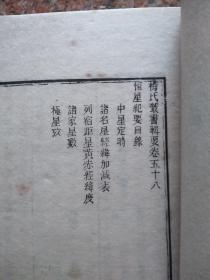 梅氏叢書輯要卷五十八
恒星紀要目錄
中星定時
諸名星經緯加減表
列宿距星黃赤經緯度
諸家星數
極星攷